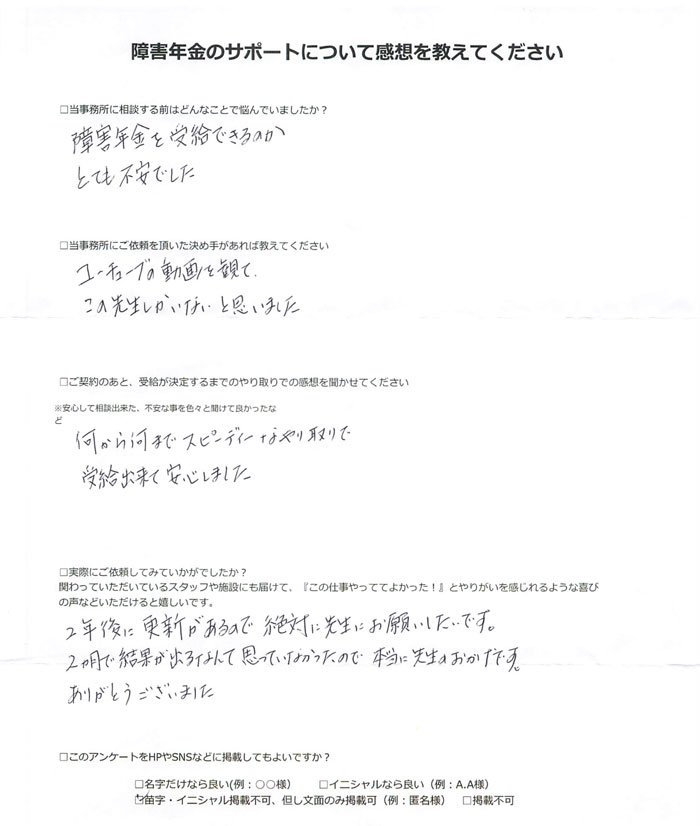 障害年金のサポートについて感想を教えてください
□当事務所に相談する前はどんなことで悩んでいましたか？
障害年金を受給できるのか
とても不安でした
□当事務所にご依頼を頂いた決め手があれば教えてください
ユーチューブの動画を観て、
この先生しかいないと思いました
□ご契約のあと、受給が決定するまでのやり取りでの感想を聞かせてください
※安心して相談出来た、不安な事を色々と聞けて良かったな
ど
何から何までスピーディーなやり取りで
受給出来て安心しました
□実際にご依頼してみていかがでしたか？
関わっていただいているスタッフや施設にも届けて、『この仕事やっててよかった！』とやりがいを感じれるような喜び
の声などいただけると嬉しいです。
2年後に更新があるので絶対に先生にお願いしたいです。
2ヵ月で結果が出るなんて思っていなかったので本当に先生のおかげです。
ありがとうございました
□このアンケートをHPやSNSなどに掲載してもよいですか？
□名字だけなら良い(例：○○様）　□イニシャルなら良い（例：A.A様）
☑苗字・イニシャル掲載不可、但し文面のみ掲載可（例：匿名様）　□掲載不可